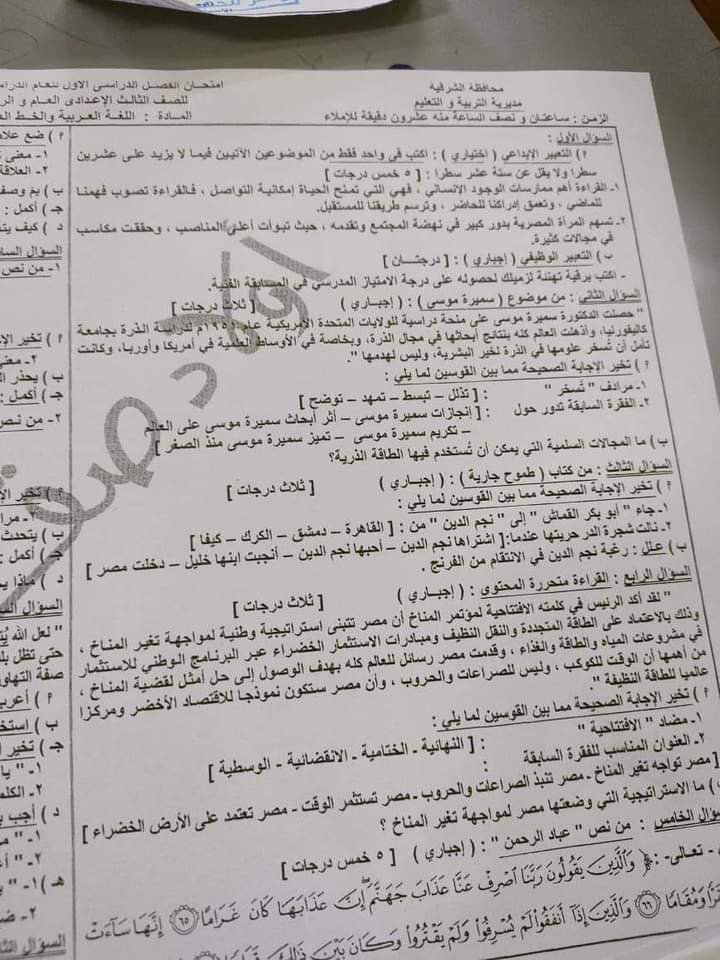 محافظة الشرقية
مديرية التربية و التعليم
الزمن : ساعتان و نصف الساعة منه عشرون دقيقة للإملاء
امتحان الفصل الدراسى الأول للعام
للصف الثالث الإعدادى العام و
المادة : اللغة العربية والخط
السؤال الأول :
أ ) التعبير الإبداعي ( اختياري ) : اكتب في واحد فقط من الموضوعين الآتيين فيما لا يزيد على عشرين
سطرا ولا يقل عن ستة عشر سطرا : [ ٥ خمس درجات ]
١- القراءة أهم ممارسات الوجود الإنساني ، فهي التي تمنح الحياة إمكانية التواصل ، فالقراءة تصوب فهمنا
للماضي ، وتعمق إدراكنا للحاضر ، وترسم طريقنا للمستقبل.
٢- تسهم المرأة المصرية بدور كبير في نهضة المجتمع وتقدمه ، حيث تبوأت أعلى المناصب ، وحققت مكاسب
في مجالات كثيرة.
ب ) التعبير الوظيفي ( إجباري ) : [ درجتــان ]
- اكتب برقية تهنئة لزميلك لحصوله على درجة الامتياز المدرسي في المسابقة الفنية.
السؤال الثاني : من موضوع ( سميرة موسى ) : ( إجباري ) [ ثلاث درجات ]
" حصلت الدكتورة سميرة موسى على منحة دراسية للولايات المتحدة الأمريكية عام ١٩٥١م لدراسة الذرة بجامعة
كاليفورنيا، وأذهلت العالم كله بنتائج أبحاثها في مجال الذرة، وبخاصة في الأوساط العلمية في أمريكا وأوربا، وكانت
تأمل أن تُسخر علومها في الذرة لخير البشرية، وليس لهدمها ".
أ ) تخير الإجابة الصحيحة مما بين القوسين لما يلي :
١- مرادف " تُسخر " : [ تذلل – تبسط – تمهد – توضح ]
٢- الفقرة السابقة تدور حول : [ إنجازات سميرة موسى – أثر أبحاث سميرة موسى على العالم
– تكريم سميرة موسى – تميز سميرة موسى منذ الصغر ]
ب ) ما المجالات السلمية التي يمكن أن تُستخدم فيها الطاقة الذرية؟
السؤال الثالث : من كتاب ( طموح جارية ) : ( إجباري ) [ ثلاث درجات ]
أ ) تخير الإجابة الصحيحة مما بين القوسين لما يلي :
١- جاء " أبو بكر القماش " إلى " نجم الدين " من : [ القاهرة – دمشق – الكرك – كيفا ]
٢- نالت شجرة الدر حريتها عندما: [ اشتراها نجم الدين – أحبها نجم الدين – أنجبت ابنها خليل – دخلت مصر ]
ب ) علل : رغبة نجم الدين في الانتقام من الفرنج .
السؤال الرابع : القراءة متحررة المحتوى : ( إجباري ) [ ثلاث درجات ]
" لقد أكد الرئيس في كلمته الافتتاحية لمؤتمر المناخ أن مصر تتبنى استراتيجية وطنية لمواجهة تغير المناخ ،
وذلك بالاعتماد على الطاقة المتجددة والنقل النظيف ومبادرات الاستثمار الخضراء عبر البرنامج الوطني للاستثمار
في مشروعات المياه والطاقة والغذاء ، وقدمت مصر رسائل للعالم كله بهدف الوصول إلى حل أمثل لقضية المناخ ،
من أهمها أن الوقت للكوكب ، وليس للصراعات والحروب ، وأن مصر ستكون نموذجا للاقتصاد الأخضر ومركزا
عالميا للطاقة النظيفة ".
أ ) تخير الإجابة الصحيحة مما بين القوسين لما يلي :
١- مضاد " الافتتاحية " : [ النهائية - الختامية - الانقضائية - الوسطية ]
٢- العنوان المناسب للفقرة السابقة :
[ مصر تواجه تغير المناخ - مصر تنبذ الصراعات والحروب - مصر تستثمر الوقت - مصر تعتمد على الأرض الخضراء ]
ما الاستراتيجية التي وضعتها مصر لمواجهة تغير المناخ ؟
السؤال الخامس : من نص " عباد الرحمن " : ( إجباري ) [ ٥ خمس درجات ]
- تعالى- : ﴿ وَالَّذِينَ يَقُولُونَ رَبَّنَا اصْرِفْ عَنَّا عَذَابَ جَهَنَّمَ إِنَّ عَذَابَهَا كَانَ غَرَامًا ٦٥ إِنَّهَا سَاءَتْ
وَمُقَامًا ٦٦ وَالَّذِينَ إِذَا أَنفَقُوا لَمْ يُسْرِفُوا وَلَمْ يَقْتُرُوا وَكَانَ بَيْنَ ذَلِكَ
أ ) ضع
١- معنى
٢- العلاقة
ب ) بم
جـ ) أكمل :
د ) كيف
السؤال
١- من نص
أ ) تخير
٢- معنى
ب ) يحذر
جـ ) أكمل :
٢- من نص
أ ) تخير
ب ) يتحدث
جـ ) أكمل
د ) ماذا
السؤال
" لعل الله
حتى تظل
صفة
أ ) أعرب
ب )
جـ ) تخير
١- " يا
٢- الكلمة
د ) أجب
هـ ) ١- "
السؤال